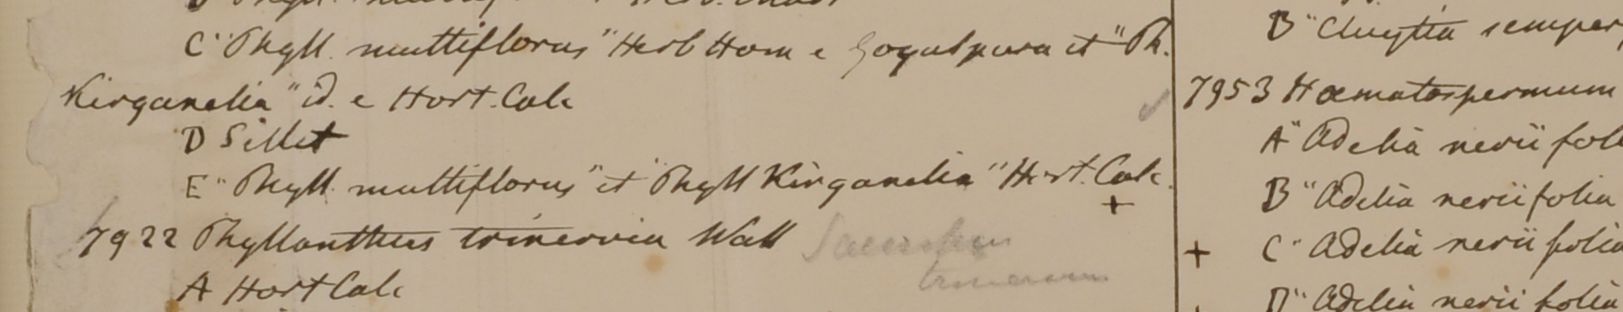 C "Phyll. multiflorus" Herb Ham e Gogulpura et "Ph.
Kirganelia" id. e Hort. Calc
D Sillet
E "Phyll. multiflorus" et "Phyll Kirganelia" Hort. Calc.
7922 Phyllanthus trinervia Wall
A Hort Calc
B "Cluytia semper
7953 Hæmatospermum
A "Adelia nerii fol
B "Adelia nerii folia
+ C "Adelia nerii folia
D "Adelia nerii folia